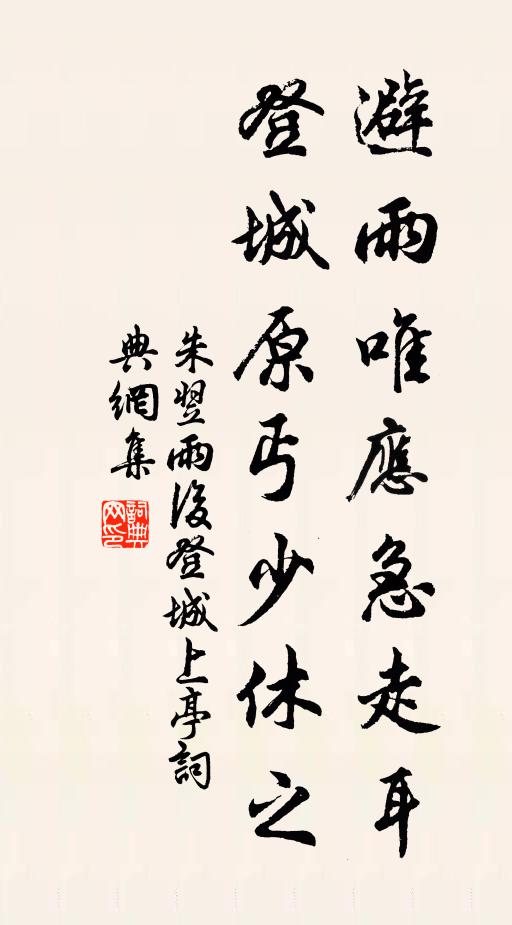 避雨唯應急走耳
登城原丐少休之
朱翌雨後登城上亭詞
典網集
詞典
网印